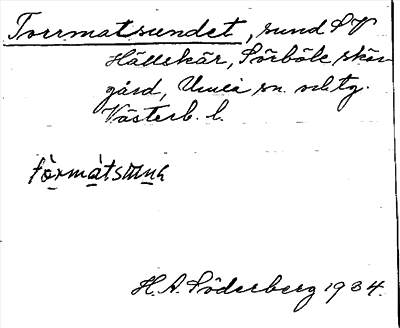 Tvermatsundet, sund SV
Hällskär, Sörböle skär-
gård, Umeå sn. o. ltg.
Västerb. l.
H. A. Söderberg 1934.